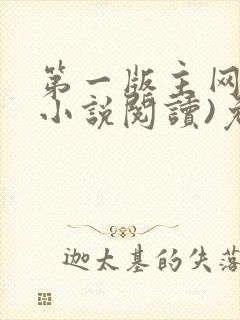 第一版主网
小説閱讀)免
迦太基的失落